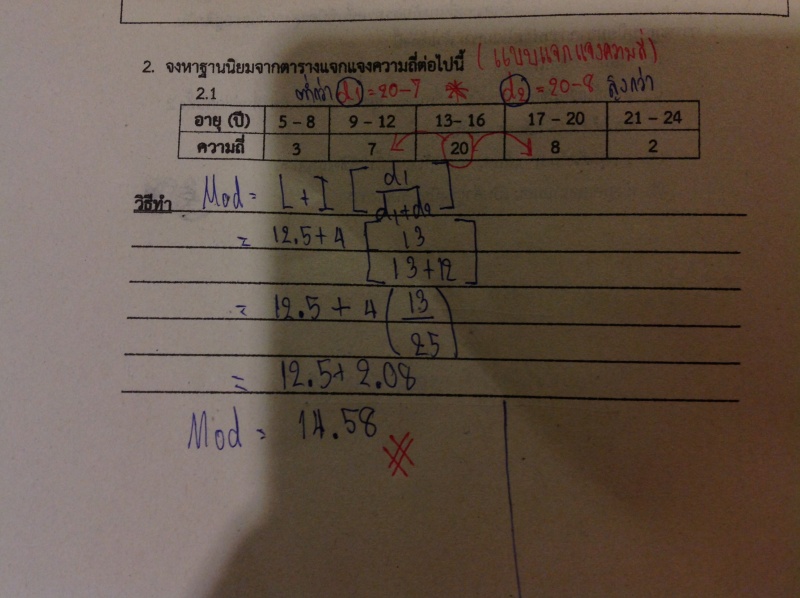 2. จงหาฐานนิยมจากตารางแจกแจงความถี่ต่อไปนี้ (แบบแจกแจงความถี่)
2.1 ต่ำกว่า d1 = 20-7 d2 = 20-8 สูงกว่า
อายุ (ปี) 5 – 8 9 – 12 13– 16 17 – 20 21 – 24
ความถี่ 3 7 20 8 2
วิธีทำ Mod = L + I [ d1 / d1+d2 ]
= 12.5+4 [ 13 / 13+12 ]
= 12.5 + 4 ( 13 / 25 )
= 12.5+ 2.08
Mod = 14.58